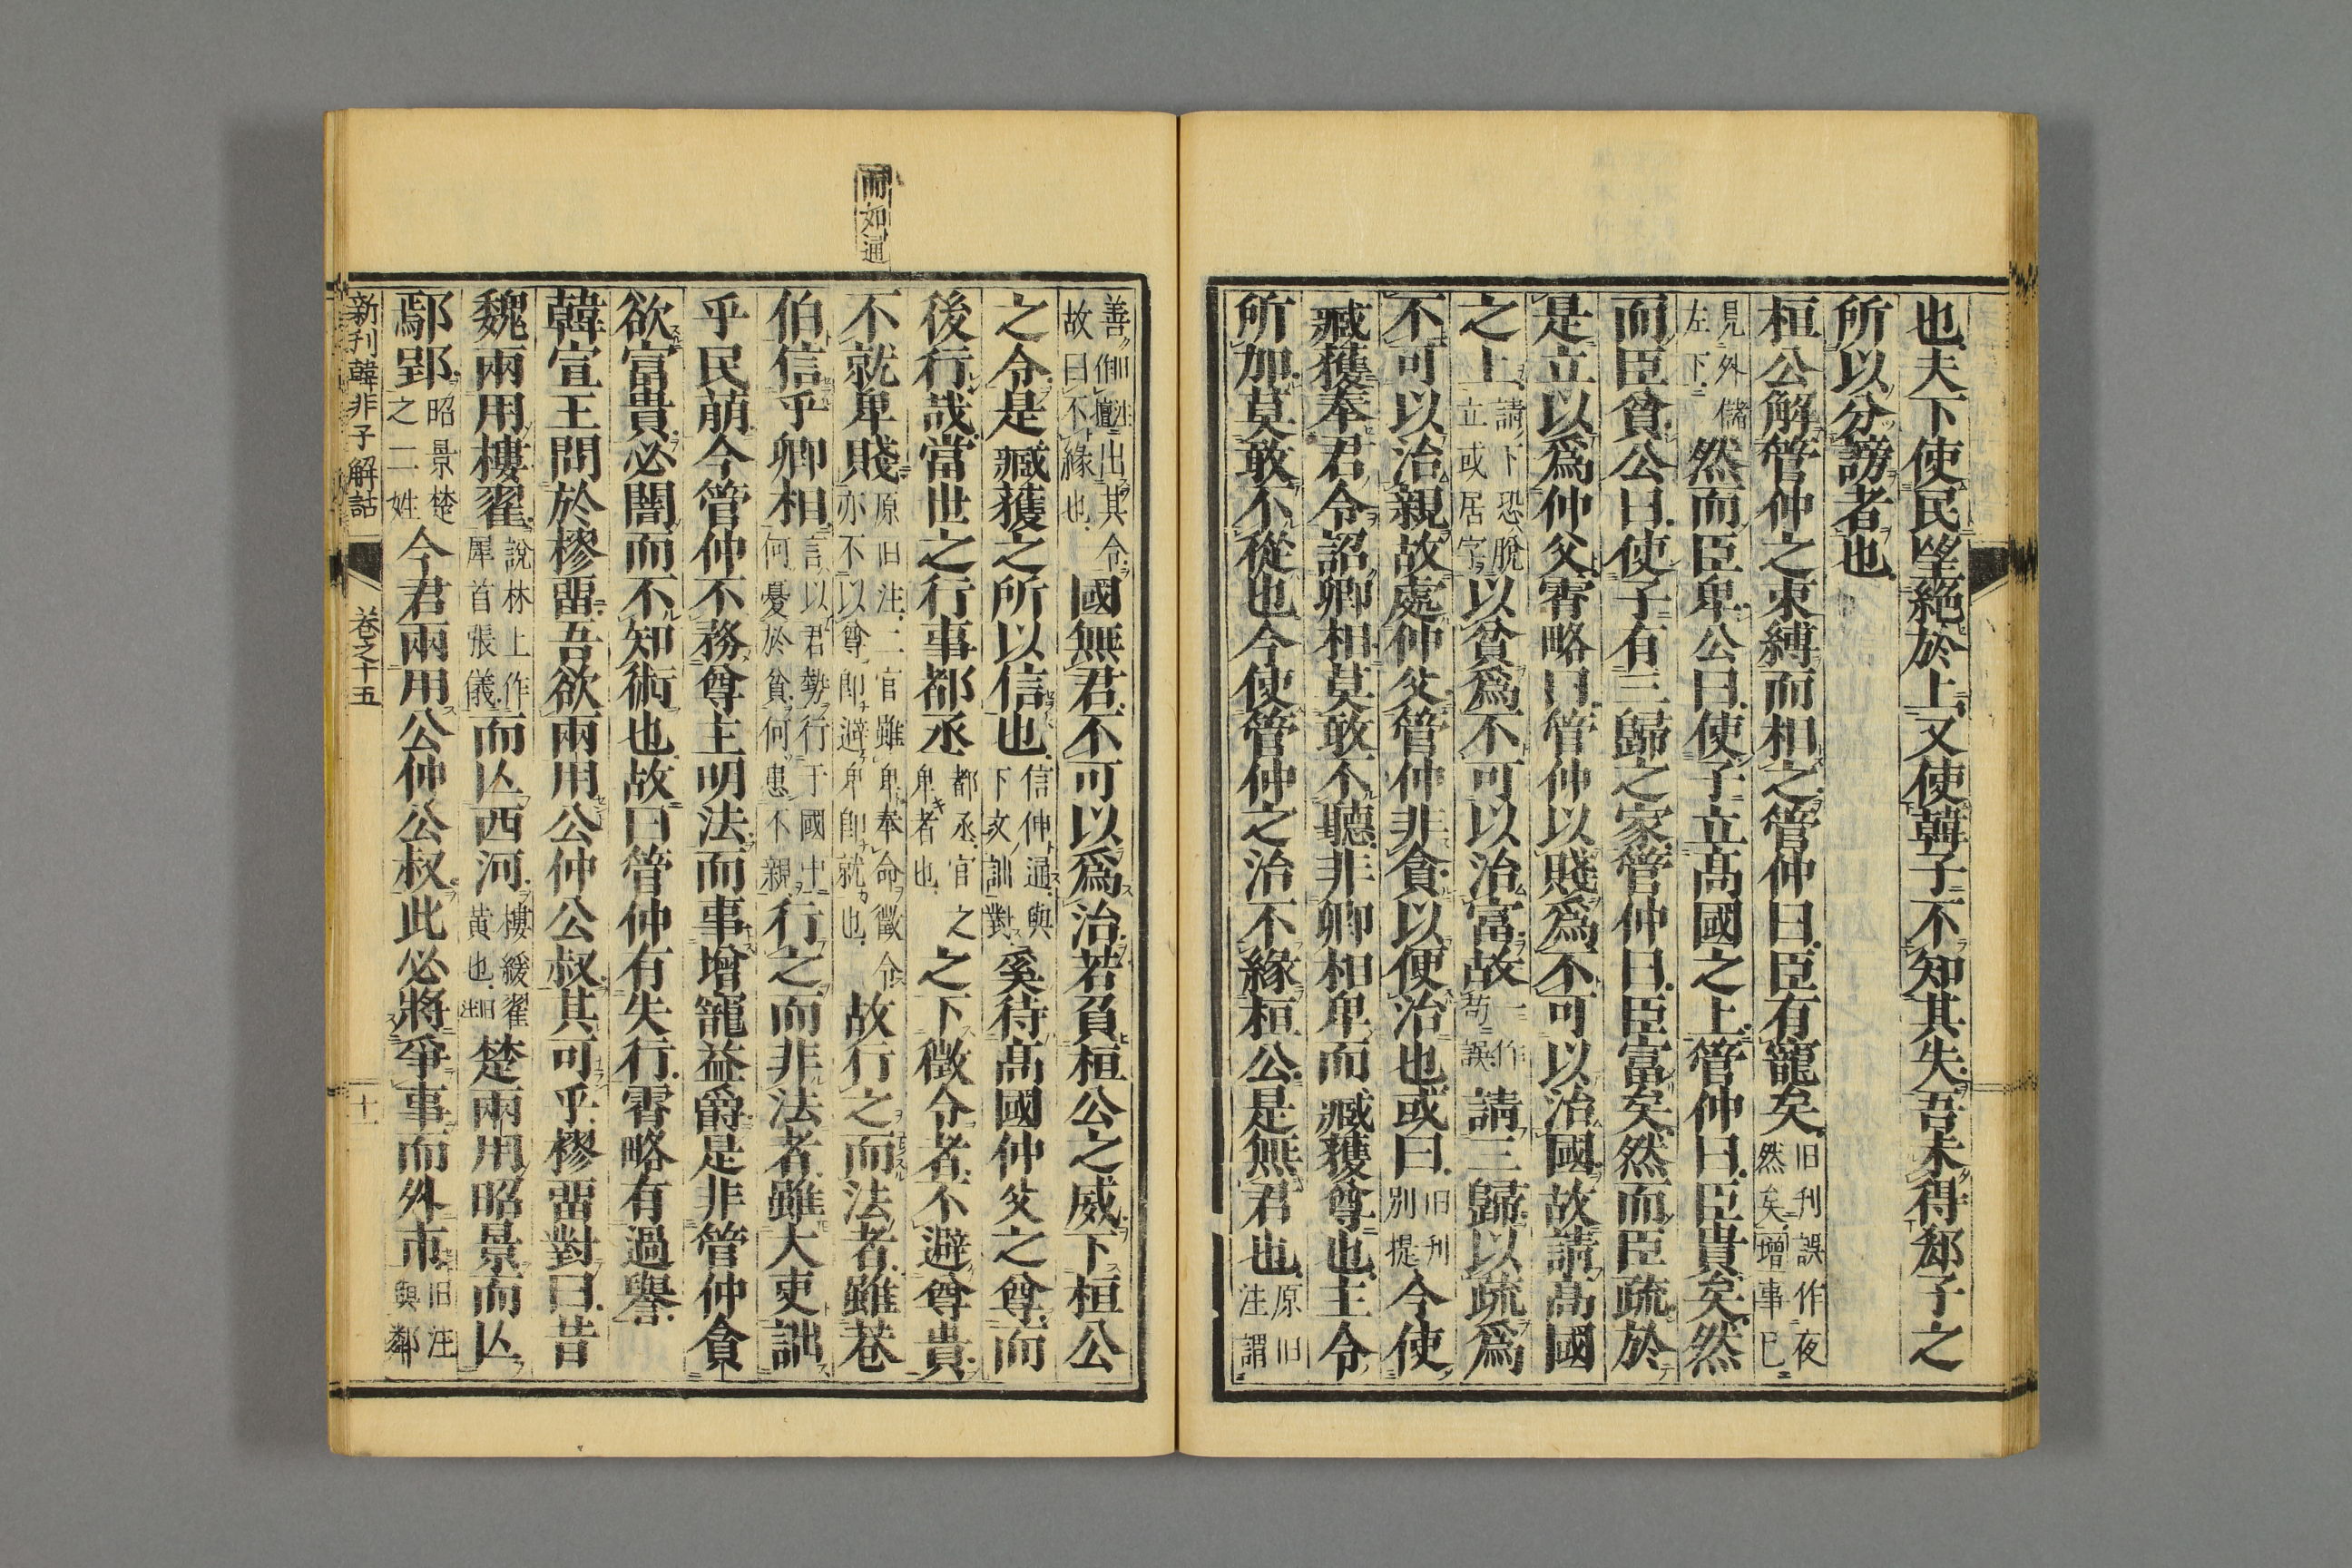 也夫下使民望絕於上又使韓子不知其失吾未得郄子之
所以分謗者也
桓公解管仲之束縛而相之管仲曰臣有寵矣旧刊誤作夜然矣増事已
見外儲左下然而臣卑公曰使子立髙國之上管仲曰臣貴矣然
而臣貧公曰使子有三歸之家管仲曰臣富矣然而臣疏於
是立以爲仲父霄略曰管仲以賤爲不可以治國故請髙國
之上請下恐脫立或居字以貧爲不可以治富故一作苟誤請三歸以疏爲
不可以治親故處仲父管仲非貪以便治也或曰旧刊別提今使
臧獲奉君令詔卿相莫敢不聽非卿相卑而臧獲尊也主令
所加莫敢不從也今使管仲之治不緣桓公是無君也原旧注謂
善㓛擅出其令故曰不緣也國無君不可以爲治若負桓公之威下桓公
之令是臧獲之所以信也信伸通與下文訓對奚待髙國仲父之尊而
後行哉當世之行事都丞都丞官之卑者也之下徵令者不避尊貴
不就卑賤原旧注二官雖卑奉命徵令亦不以尊卽避卑卽就也故行之而法者雖巷
伯信乎卿相言以君勢行于國中何憂於貧何患不親行之而非法者雖大吏詘
乎民萌今管仲不務尊主明法而事增寵益爵是非管仲貪
欲富貴必闇而不知術也故曰管仲有失行霄略有過譽
韓宣王問於樛畱吾欲兩用公仲公叔其可乎樛畱對曰昔
魏兩用樓翟說林上作犀首張儀而亾西河樓緩翟黄也旧注楚兩用昭景而亾
鄢郢昭景楚之二姓今君兩用公仲公叔此必將爭事而外市旧注與鄰
而如通
新刊韓非子解詁 卷之十五 十一